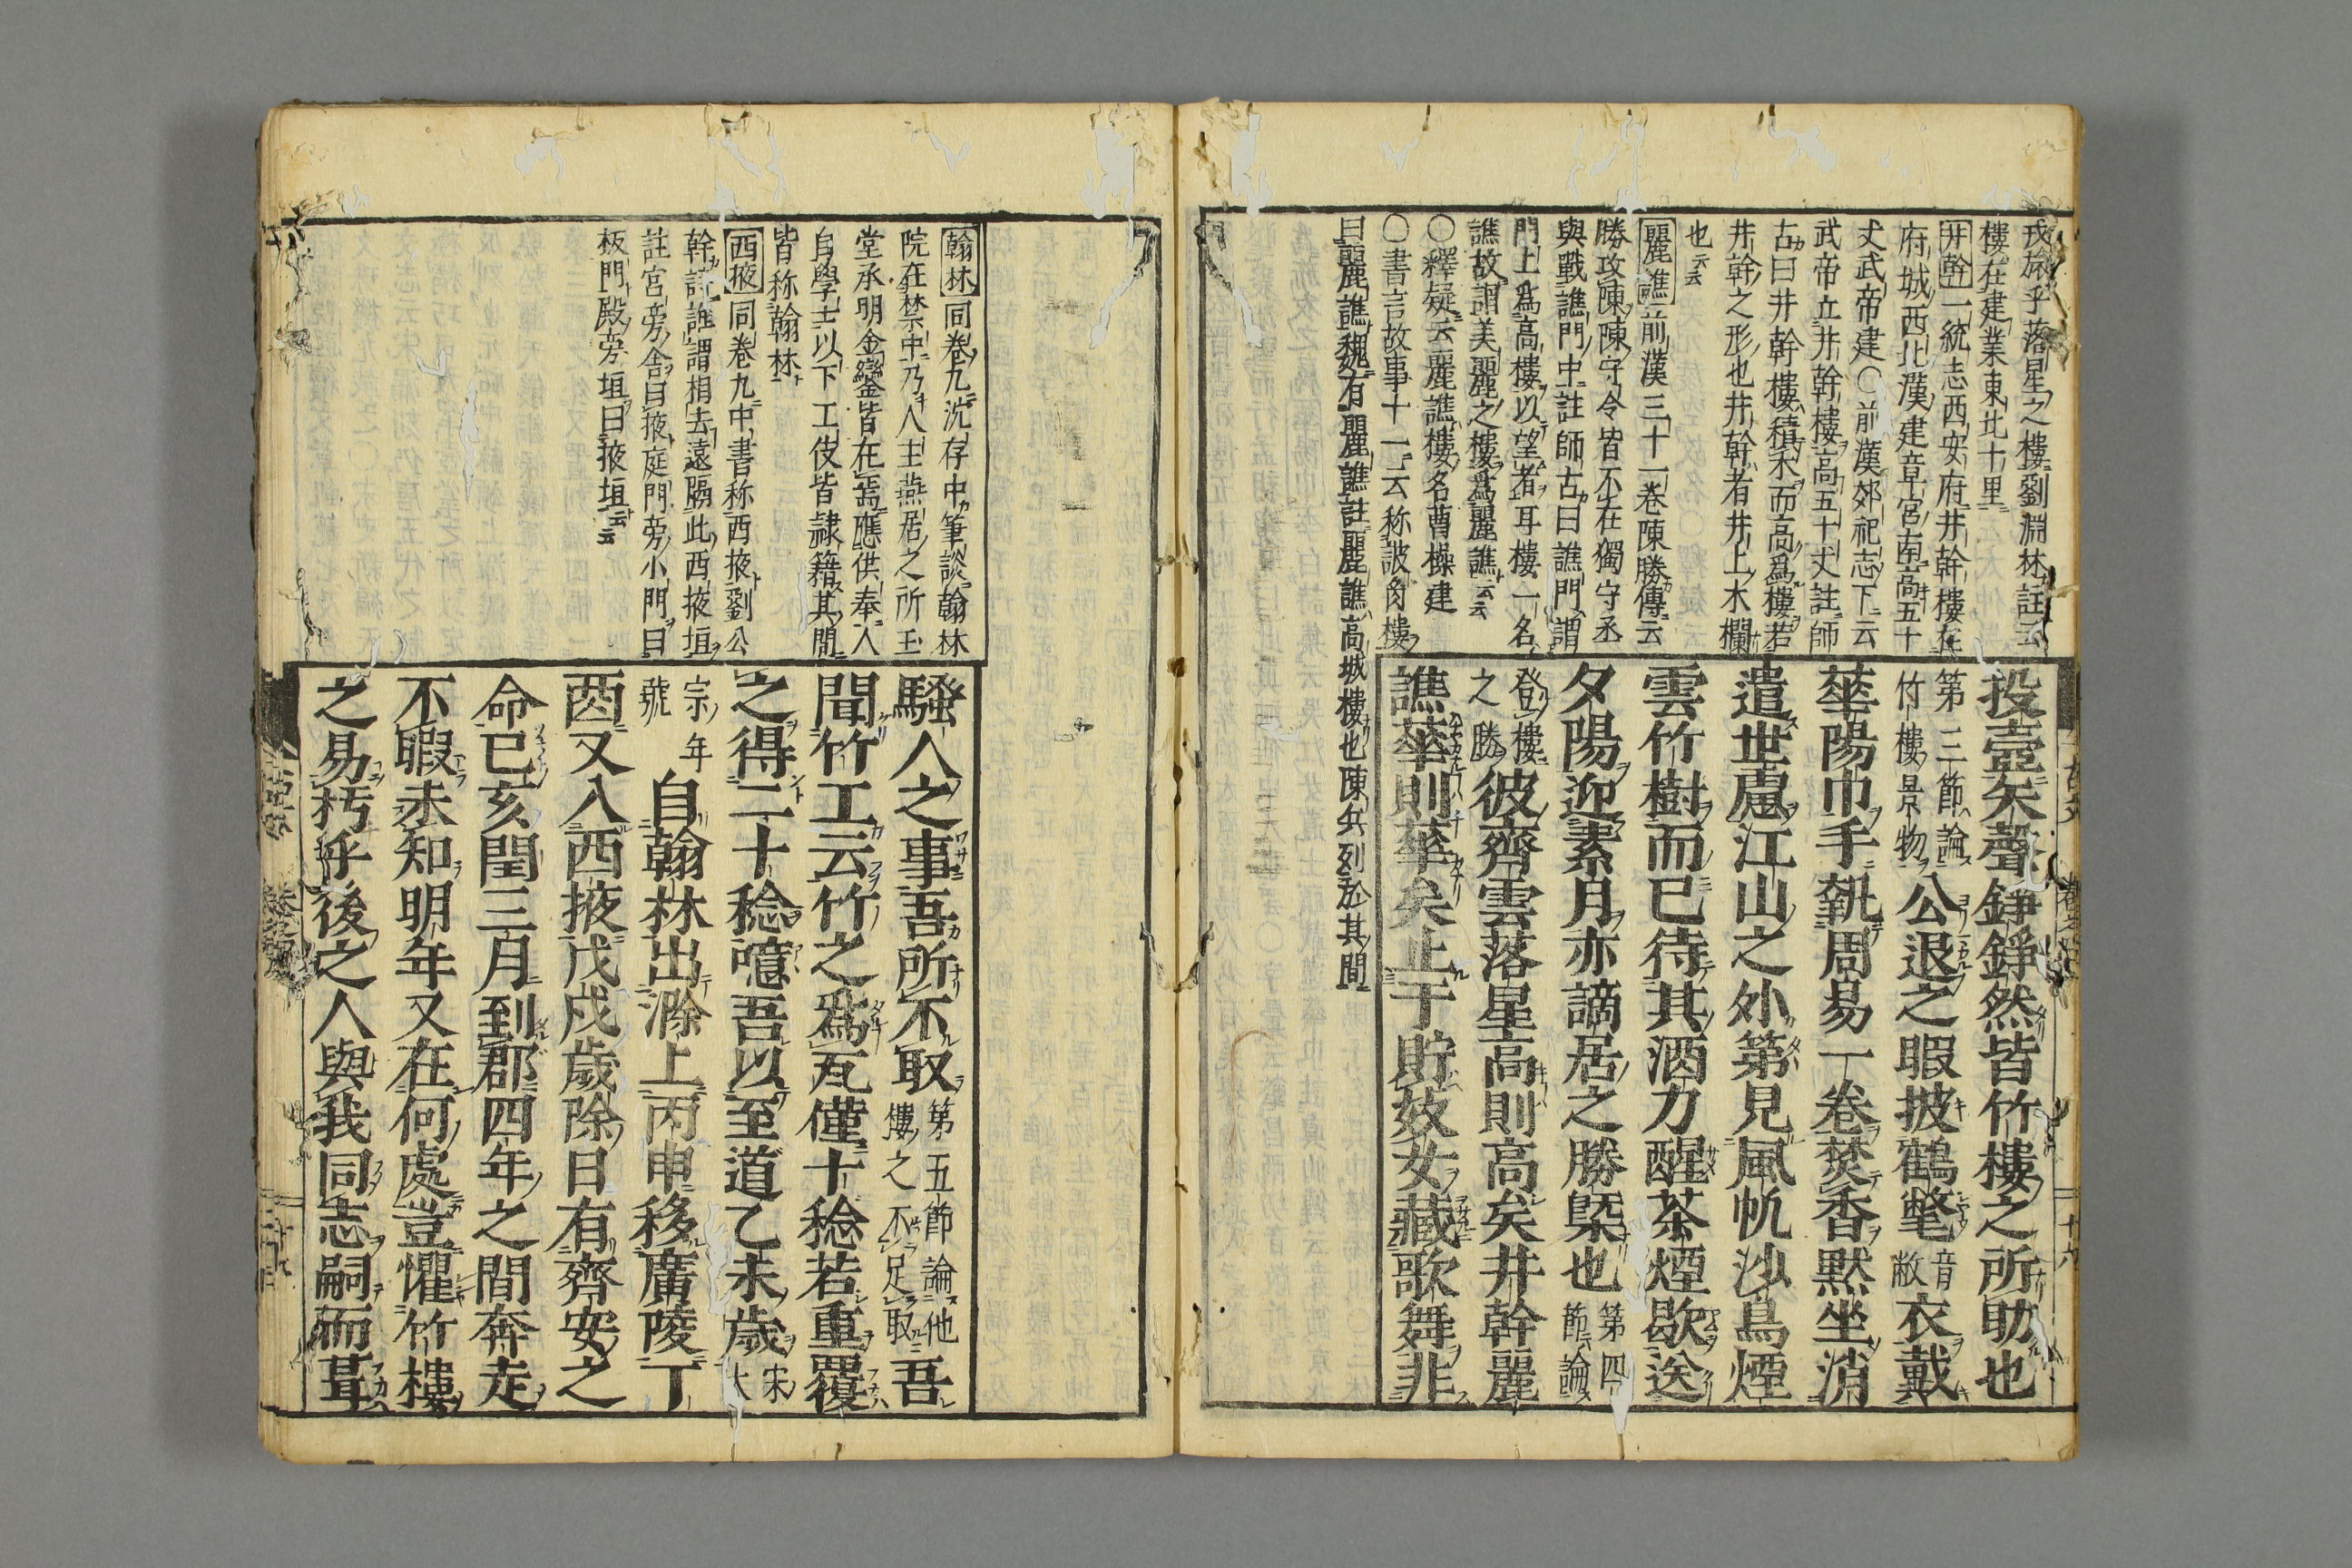 戎旅乎落星之樓劉淵林註云
樓在建業東北十里
井幹一統志西安府井幹樓在
府城西北漢建章宮南高五十
丈武帝建〇前漢郊祀志下云
武帝立井幹樓高五十丈註師
古曰井幹樓積禾而高爲樓若
井幹之形也井幹者井上木欄
也云云
麗譙前漢三十一卷陳勝傳云
勝攻陳陳守令皆不在獨守丞
與戰譙門中註師古曰譙門謂
門上爲高樓以望者耳樓一名
譙故謂美麗之樓爲麗譙云云
〇釋疑云麗譙樓名曹操建
〇書言故事十一云称譙角樓
曰麗譙魏有麗譙註麗譙高城樓也陳兵列於其間
投壺矢聲錚錚然皆竹樓之所助也
第三節論
竹樓景物
公退之暇披鶴氅
音
敝
衣戴
華陽巾手執周易一卷焚香默坐消
遣世慮江山之外第見風帆沙鳥煙
雲竹樹而已待其酒力醒茶煙歇送
夕陽迎素月亦謫居之勝槩也
第四
節論
登樓
之勝
彼齊雲落星高則高矣井幹麗
譙華則華矣止于貯妓女藏歌舞非
翰林同卷九沈存中筆談翰林
院在禁中乃人主燕居之所玉
堂承明金鑾皆在焉應供奉人
自學士以下工伎皆隷籍其間
皆称翰林
西掖同卷九中書称西掖劉公
幹詩誰謂相去遠隔此西掖垣
註宮旁舎曰掖庭門旁小門曰
板門殿旁垣曰掖垣云云
騷人之事吾所不取
第五節論他
樓之不足取
吾
聞竹工云竹之爲瓦僅十稔若重覆
之得二十稔噫吾以至道乙未歲
宋
太
宗年
號
自翰林出滁上丙申移廣陵丁
酉又入西掖戊戌歲除日有齊安之
命己亥閏三月到郡四年之間奔走
不暇未知明年又在何處豈懼竹樓
之易朽乎後之人與我同志嗣而葺